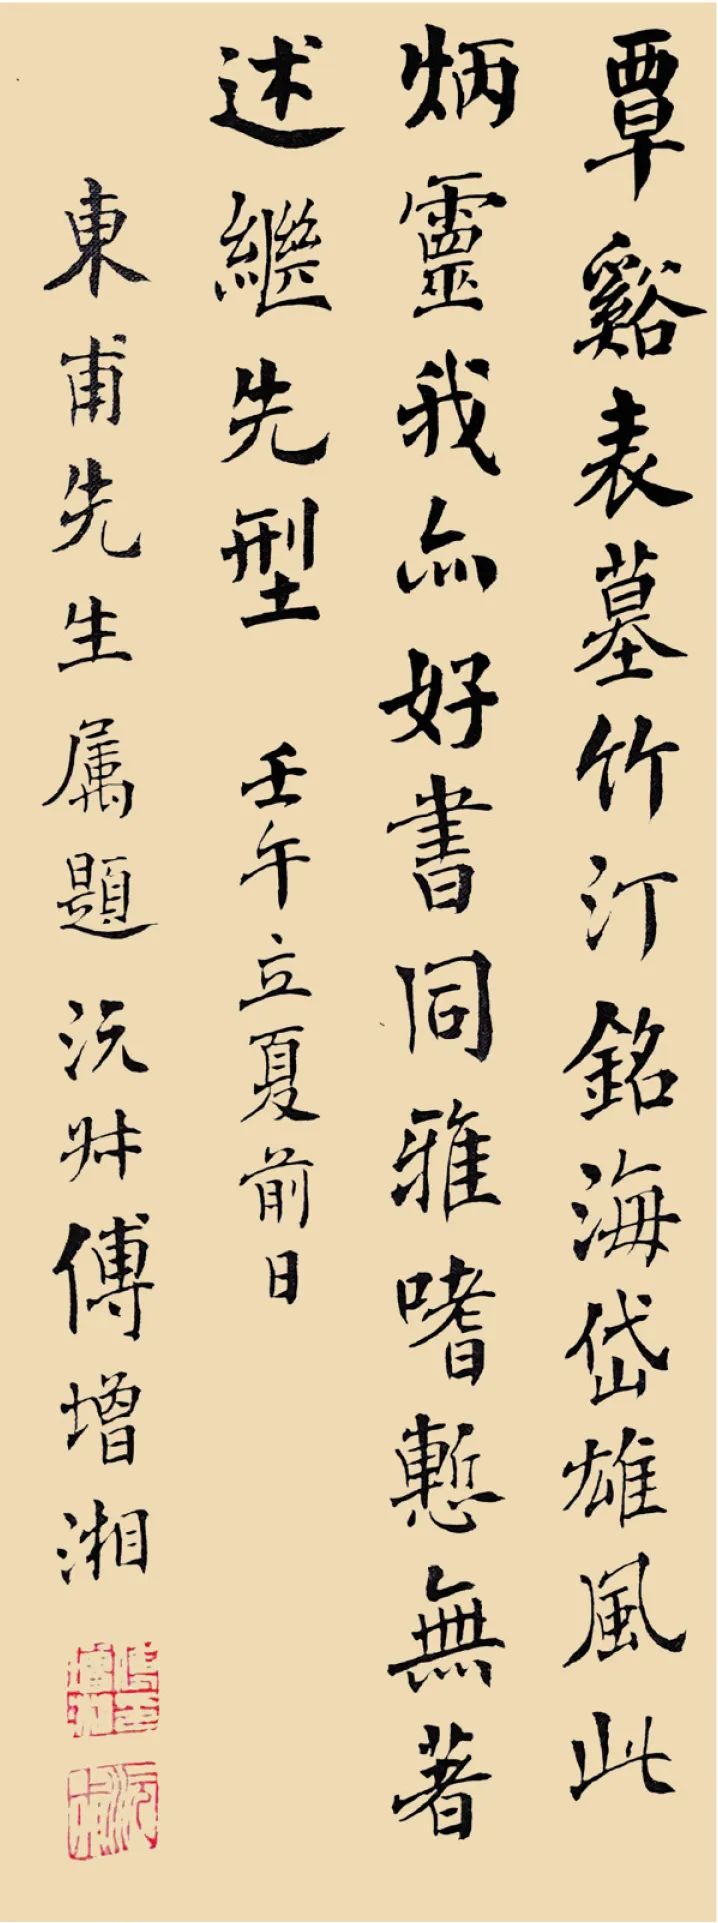 覃谿表墓竹汀銘海岱雄風此
炳靈我亦好書同雅嗜慙無著
述繼先型 壬午立夏前日
東甫先生属題沅叔傅增湘